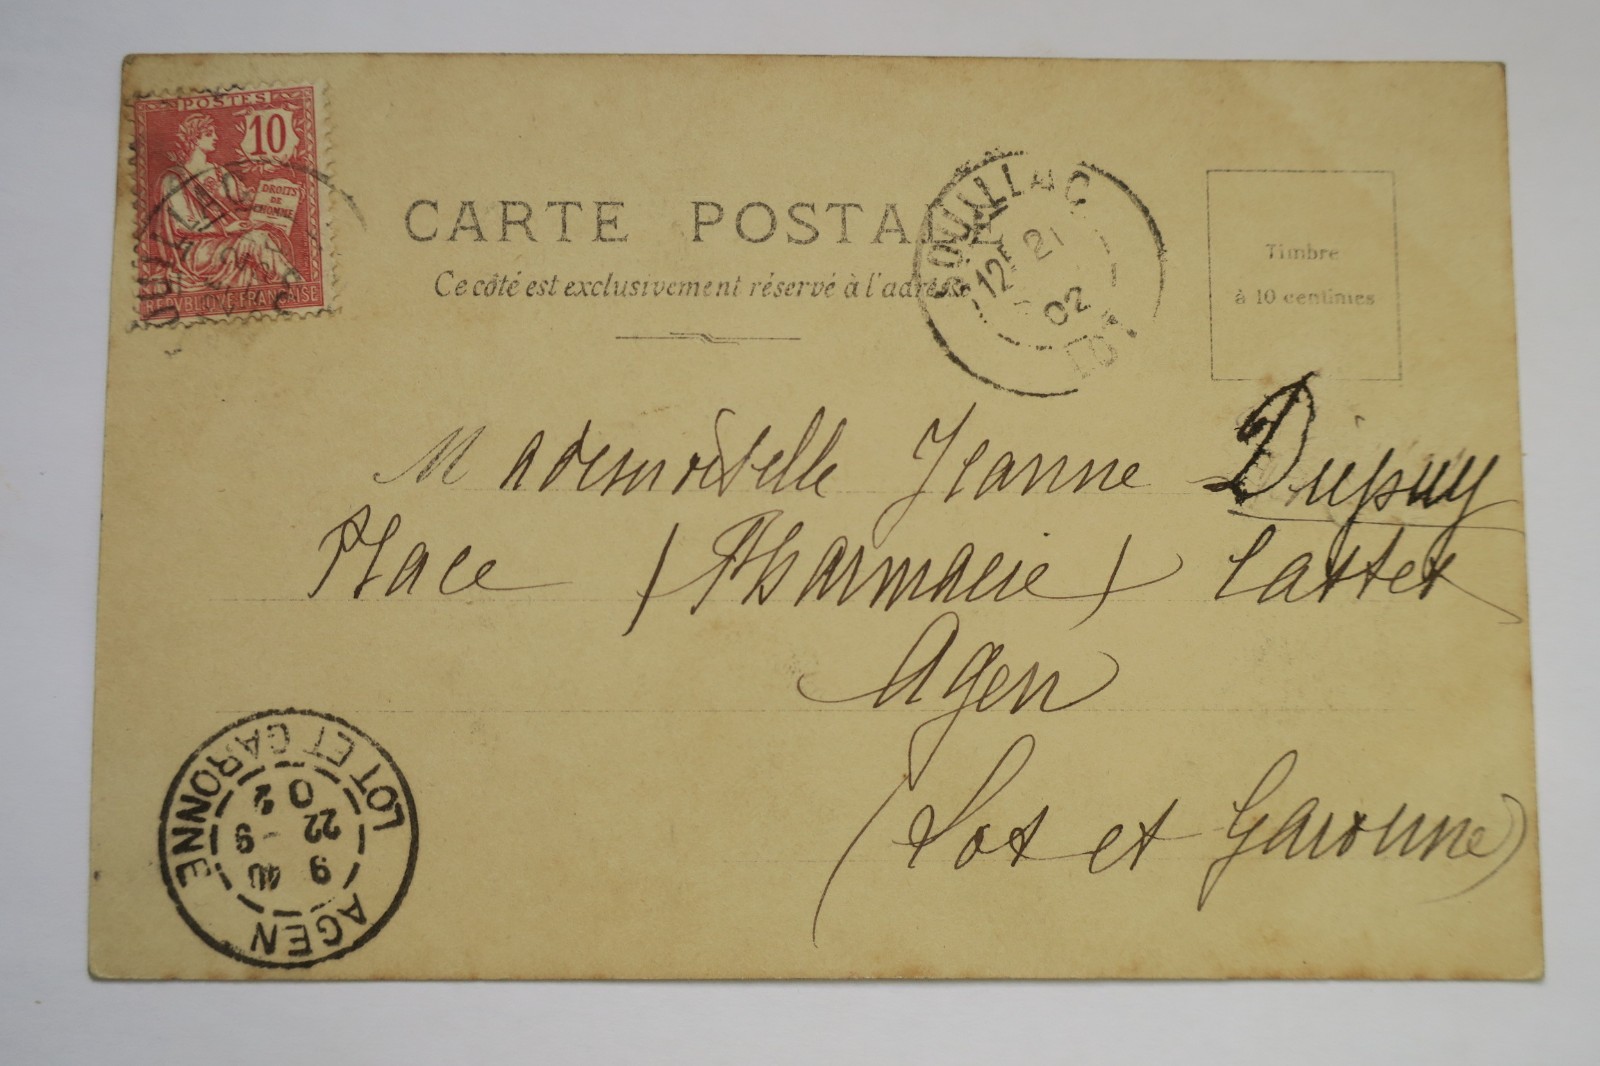 POSTES
10
DROITS
DE
L'HOMME
REPUBLIQUE FRANÇAISE
CARTE POSTALE
Ce côté est exclusivement réservé à l'adresse
SOUILLAC
12E 21
02
LOT
Timbre
à 10 centimes
Mademoiselle Jeanne Dupuy
Place (Pharmacie)
Agen
(Lot et Garonne)
AGEN
9 40
22 -9
02
LOT ET GARONNE